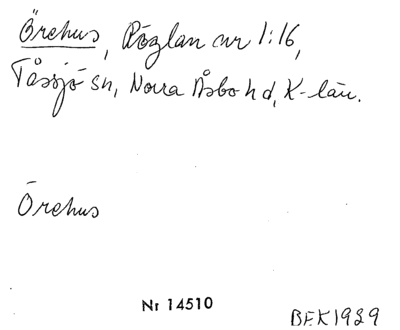 Örehus, Röglan nr 1:16,
Tåssjö sn, Norra Åsbo hd, K-län.
Örehus
Nr 14510
BEK1939